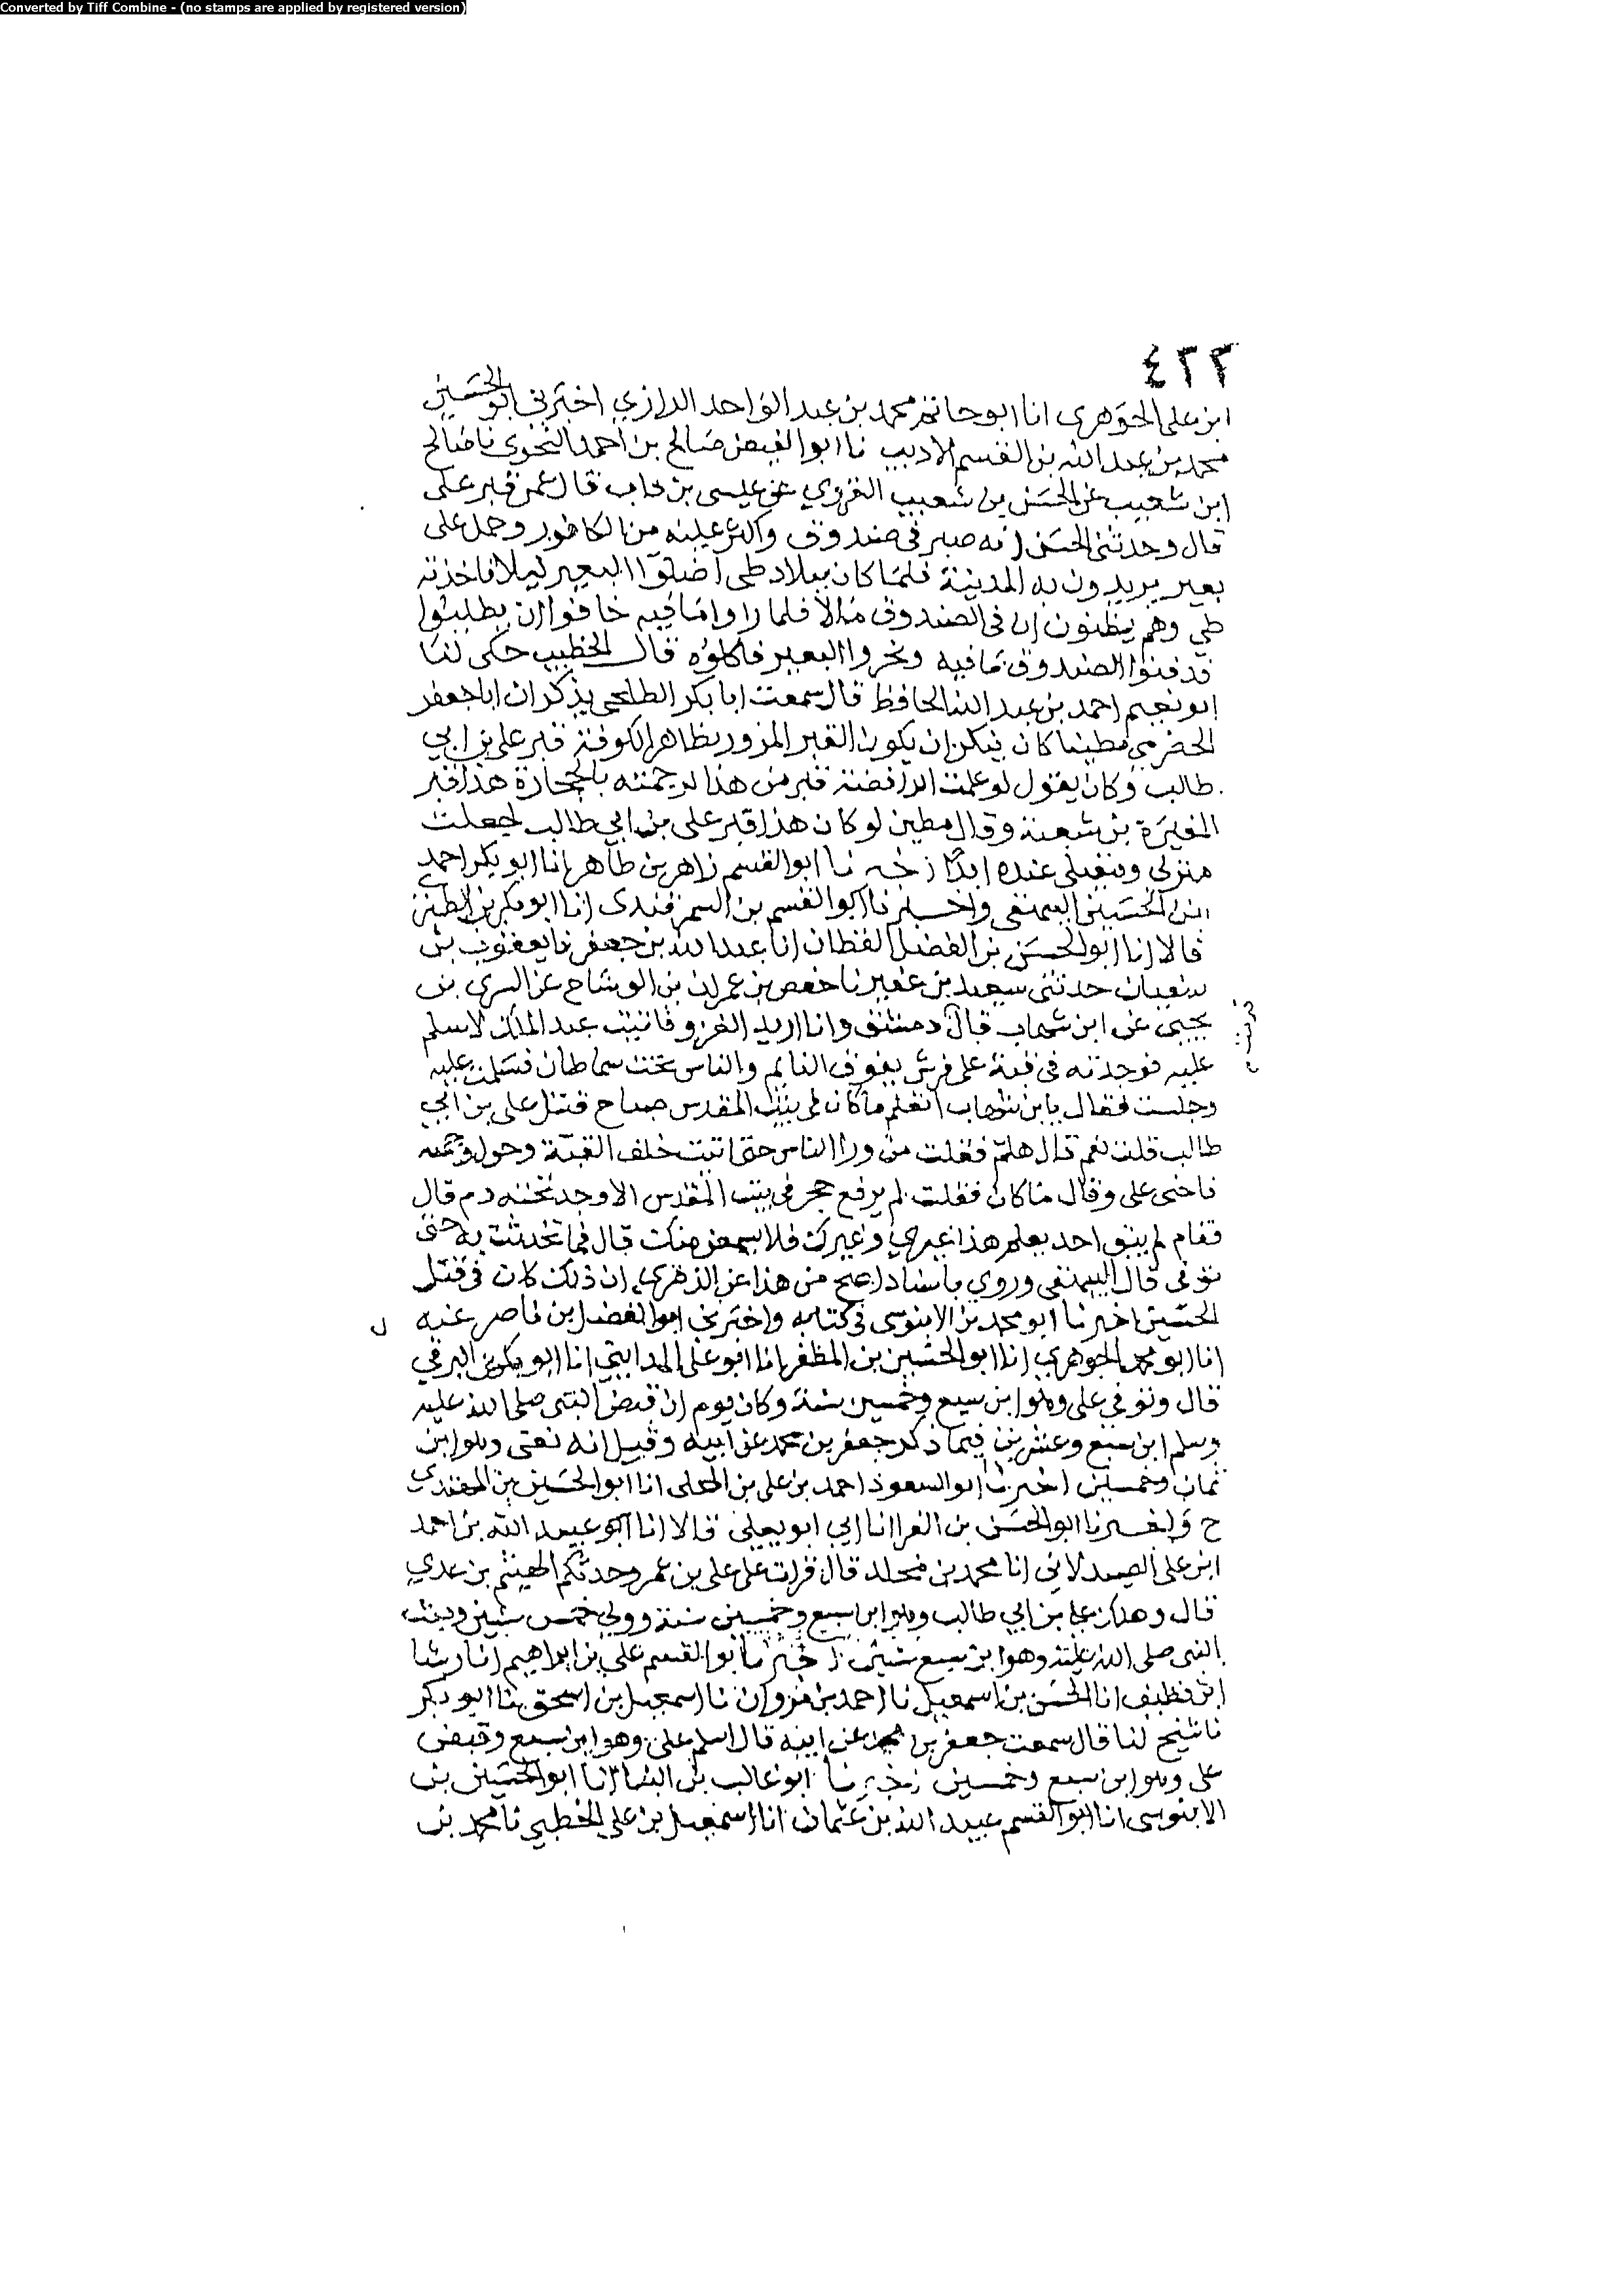 Converted by Tiff Combine - (no stamps are applied by registered version)
٤٢٢
ابن على الجوهرى انا ابو حاتم محمد بن عبد الواحد الرازي اخبرني ابو الحسين
محمد بن عبد الله بن القسم الاديب نا ابو الفيض صالح بن احمد النحوي نا صالح
ابن شعيب عن الحسن بن شعيب الفروي عن عيسى بن داب قال عمي قبر على
قال وحدثني الحسن انه صير في صندوق واكثر عليه من الكافور وحمل على
بعير يريدون به المدينة فلما كان ببلاد طي اضلوا البعير ليلا فاخذته
طي وهم يظنون ان في الصندوق مالا فلما راوا ما فيه خافوا ان يطلبوا
فدفنوا الصندوق بما فيه ونحروا البعير فاكلوه قال الخطيب حكى لنا
ابو نعيم احمد بن عبد الله الحافظ قال سمعت ابا بكر الطلحي يذكر ان ابا جعفر
الحضرمي مطينا كان ينكر ان يكون القبر المزور بظاهر الكوفة قبر على بن ابي
طالب وكان يقول لو علمت الرافضة قبر من هذا لرجمته بالحجارة هذا قبر
المغيرة بن شعبة وقال مطين لو كان هذا قبر على بن ابي طالب لجعلت
منزلى ومقيلى عنده ابدا اخبرنا ابو القسم زاهر بن طاهر انا ابو بكر احمد
ابن الحسين البيهقى واخبرنا ابو القسم بن السمرقندى انا ابو بكر بن الطبري
قالا انا ابو الحسين بن الفضل القطان انا عبد الله بن جعفر نا يعقوب بن
سفيان حدثنى سعيد بن عفير نا حفص بن عمران بن الوشاح عن السرى بن
يحيى عن ابن شهاب قال دمشق وانا اريد الغزو فاتيت عبد الملك لاسلم
عليه فوجدته في قبة على فرش يفوق القايم والناس تحته سماطان فسلمت عليه
وجلست فقال يا بن شهاب اتعلم ما كان في بيت المقدس صباح قتل على بن ابي
طالب قلت نعم قال هلم فقمت من ورا الناس حتى اتيت خلف القبة وحول وجهه
فاحنى على وقال ما كان فقلت لم يرفع حجر في بيت المقدس الا وجد تحته دم قال
فقام لم يبق احد يعلم هذا غيري وغيرك فلا يسمعن منك قال فما تحدثت به حتى
توفي قال البيهقى وروي باسناد اصح من هذا عن الزهري ان ذلك كان في قتل
الحسين اخبرنا ابو محمد بن الابنوسى في كتابه واخبرني ابو الفضل بن ناصر عنه
انا ابو محمد الجوهري انا ابو الحسين بن المظفر انا ابو على المدايني انا ابو بكر بن البرقي
قال وتوفي على وهو ابن سبع وخمسين سنة وكان يوم ان قبض النبى صلى الله عليه
وسلم ابن سبع وعشرين فيما ذكر جعفر بن محمد عن ابيه وقيل انه توفي وهو ابن
ثمان وخمسين اخبرنا ابو السعود احمد بن على بن المجلى انا ابو الحسين بن المهتدي
ح واخبرنا ابو الحسين بن الفرا انا ابي ابو يعلى قالا انا ابو عبيد الله بن احمد
ابن على الصيدلاني انا محمد بن مخلد قال قرات على على بن عمرو حدثكم الهيثم بن عدي
قال وهلك على بن ابي طالب وهو ابن سبع وخمسين سنة وولي خمس سنين وبعث
النبى صلى الله عليه وهو ابن سبع سنين اخبرنا ابو القسم على بن ابراهيم انا رشا
ابن نظيف انا الحسن بن اسمعيل نا احمد بن مروان نا اسمعيل بن اسحق نا ابو بكر
نا شيخ لنا قال سمعت جعفر بن محمد عن ابيه قال اسلم على وهو ابن سبع وقبض
على وهو ابن سبع وخمسين اخبرنا ابو غالب بن البنا انا ابو الحسين بن
الابنوسى انا ابو القسم عبيد الله بن عثمان انا اسمعيل بن على الخطبي نا محمد بن